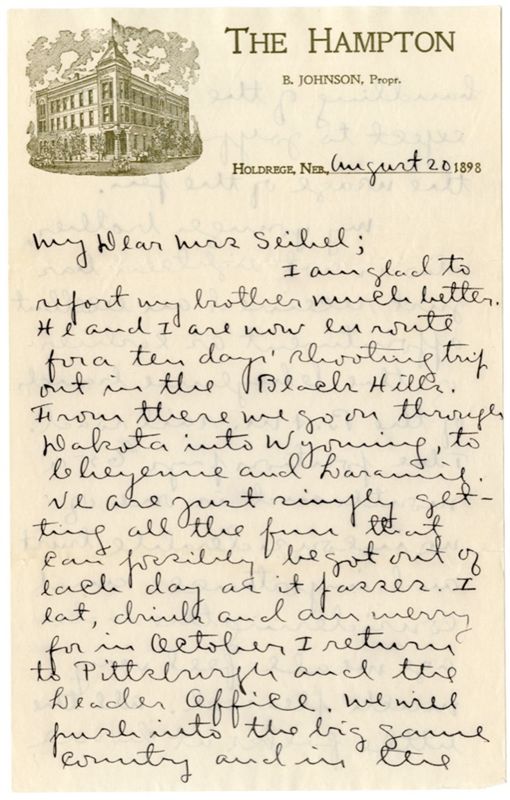 THE HAMPTON
B. JOHNSON, Propr.
HOLDREGE, NEB., August 20 1898
My Dear Mrs Seibel;
I am glad to
report my brother much better.
He and I are now en route
for a ten days' shooting trip
out in the Black Hills.
From there we go on through
Dakota into Wyoming, to
Cheyenne and Laramie.
We are just simply get-
ting all the fun that
can possibly be got out of
each day as it passes. I
eat, drink and am merry
for in October I return
to Pittsburgh and the
Leader Office. We will
push into the big game
country and in the